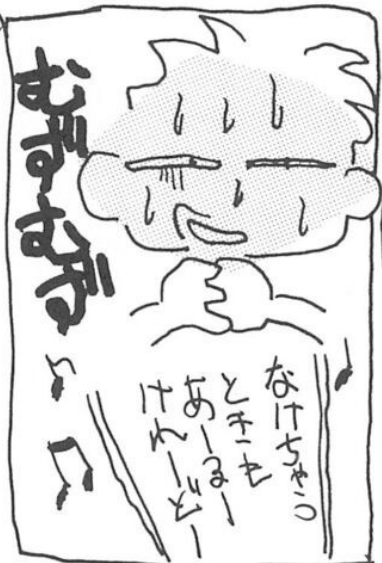 なけちゃう
ときも
あーるー
けれーどー